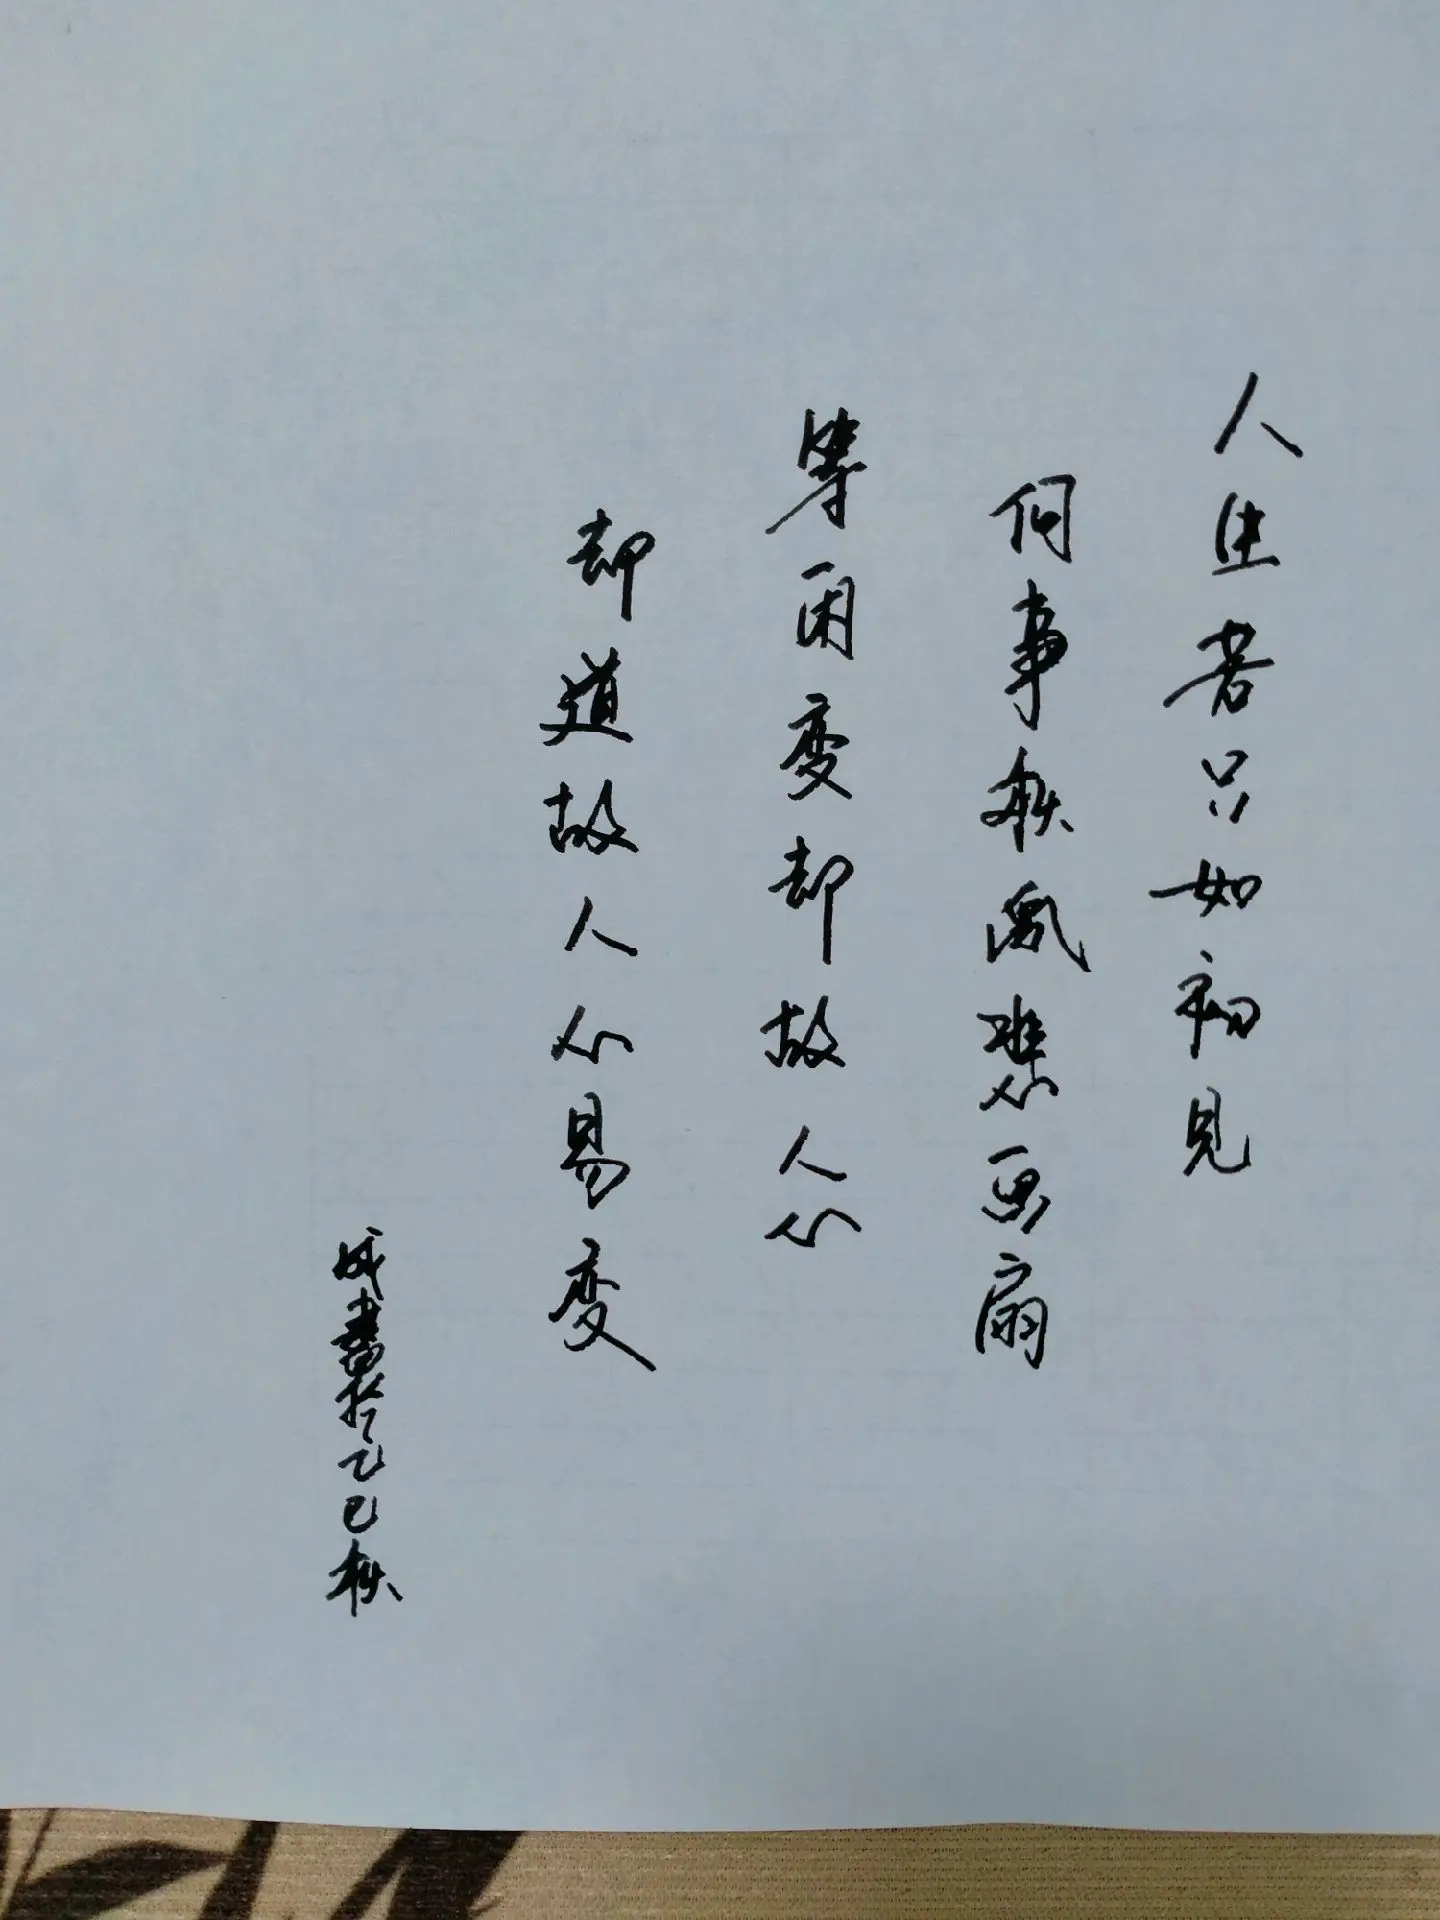 人生若只如初见
何事秋风悲画扇
等闲变却故人心
却道故人心易变
成书于乙巳秋